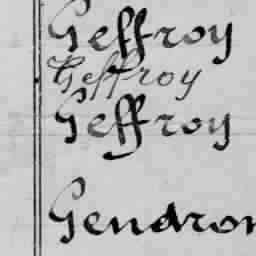 Geffroy
Geffroy
Geffroy
Gendron